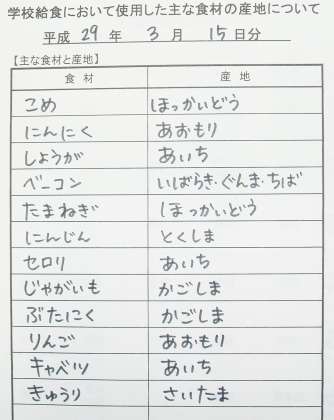 学校給食において使用した主な食材の産地について
平成 29 年 3 月 15 日分
【主な食材と産地】
食材 産地
こめ ほっかいどう
にんにく あおもり
しょうが あいち
ベーコン いばらき・ぐんま・ちば
たまねぎ ほっかいどう
にんじん とくしま
セロリ あいち
じゃがいも かごしま
ぶたにく かごしま
りんご あおもり
キャベツ あいち
きゅうり さいたま